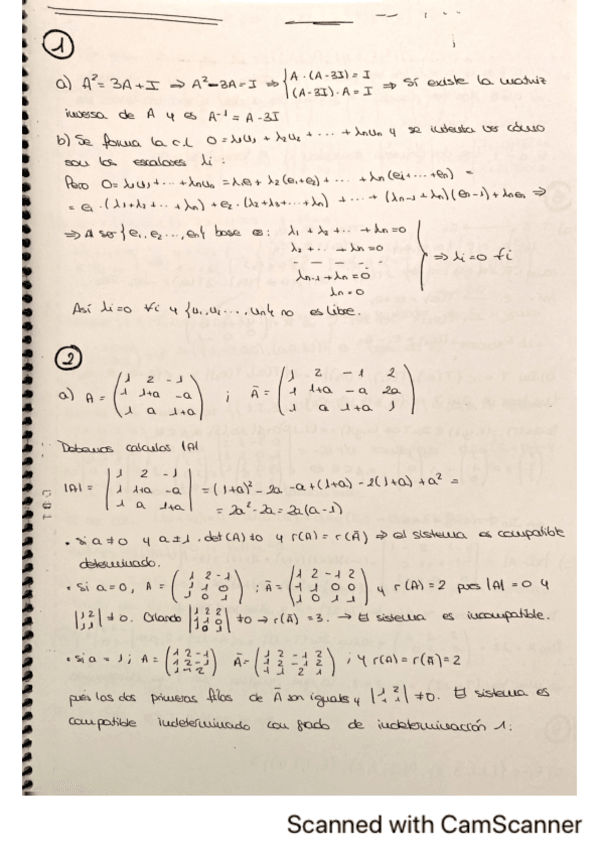 1
a) A² = 3A + I ⇒ A² - 3A = I ⇒ { A · (A - 3I) = I ; (A - 3I) · A = I ⇒ Sí existe la matriz
inversa de A y es A⁻¹ = A - 3I
b) Se forma la c.l. 0 = λ₁u₁ + λ₂u₂ + ··· + λₙuₙ y se intenta ver cómo
son los escalares λi :
Pero 0 = λ₁u₁ + ··· + λₙuₙ = λ₁e₁ + λ₂(e₁+e₂) + ··· + λₙ(e₁+···+eₙ) =
= e₁ · (λ₁+λ₂+ ··· + λₙ) + e₂ · (λ₂+λ₃+···+λₙ) + ··· + (λₙ₋₁ + λₙ)(eₙ₋₁) + λₙeₙ ⇒
⇒ Al ser {e₁, e₂ ..., eₙ} base es: λ₁ + λ₂ + ··· + λₙ = 0
λ₂ + ··· + λₙ = 0
- - - - - - -
λₙ₋₁ + λₙ = 0 ⇒ λi = 0 ∀i
λₙ = 0
Así λi = 0 ∀i y {u₁, u₂ ···, uₙ} no es libre.
2
a) A = (1 2 -1 ; 1 1+a -a ; 1 a 1+a) ; Ā = (1 2 -1 2 ; 1 1+a -a 2a ; 1 a 1+a 1)
Debemos calcular |A|
|A| = |1 2 -1 ; 1 1+a -a ; 1 a 1+a| = (1+a)² - 2a - a + (1+a) - 2(1+a) + a² =
= 2a² - 2a = 2a(a-1)
· Si a ≠ 0 y a ≠ 1 · det(A) ≠ 0 y r(A) = r(Ā) ⇒ el sistema es compatible
determinado.
· Si a = 0, A = (1 2 -1 ; 1 1 0 ; 1 0 1) ; Ā = (1 2 -1 2 ; 1 1 0 0 ; 1 0 1 1) y r(A) = 2 pues |A| = 0 y
|1 2 ; 1 1| ≠ 0. Orlando |1 2 2 ; 1 1 0 ; 1 0 1| ≠ 0 → r(Ā) = 3. → El sistema es incompatible.
· Si a = 1 ; A = (1 2 -1 ; 1 2 -1 ; 1 1 2) Ā = (1 2 -1 2 ; 1 2 -1 2 ; 1 1 2 1) ; y r(A) = r(Ā) = 2
pues las dos primeras filas de Ā son iguales y |1 2 ; 1 1| ≠ 0. El sistema es
compatible indeterminado con grado de indeterminación 1:
Scanned with CamScanner